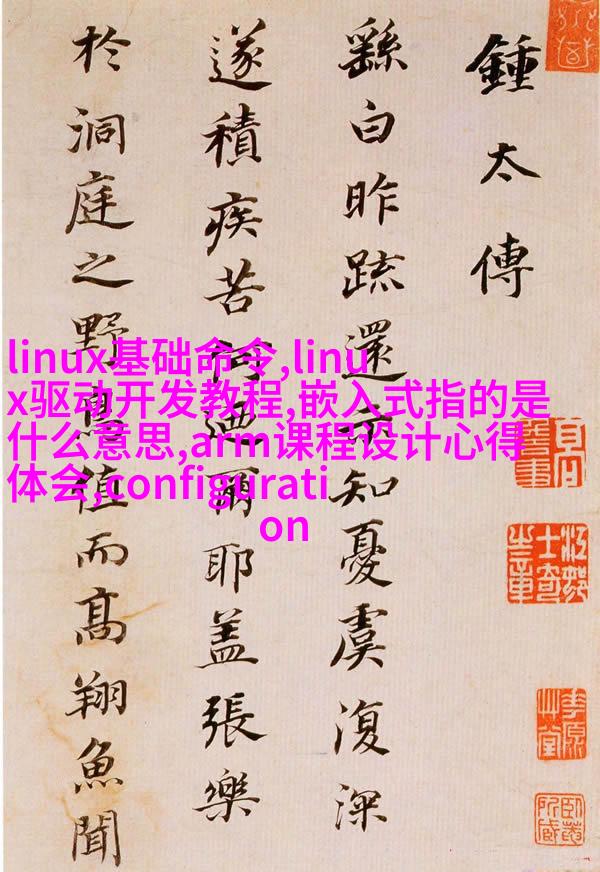 鍾太傅
繇白昨疏還示知憂虞復深
遂積疾苦何迺爾耶蓋張樂
於洞庭之野鳥值而高翔魚聞
linux基础命令,linu
x驱动开发教程,嵌入式指的是
什么意思,arm课程设计心得
体会,configurati
on